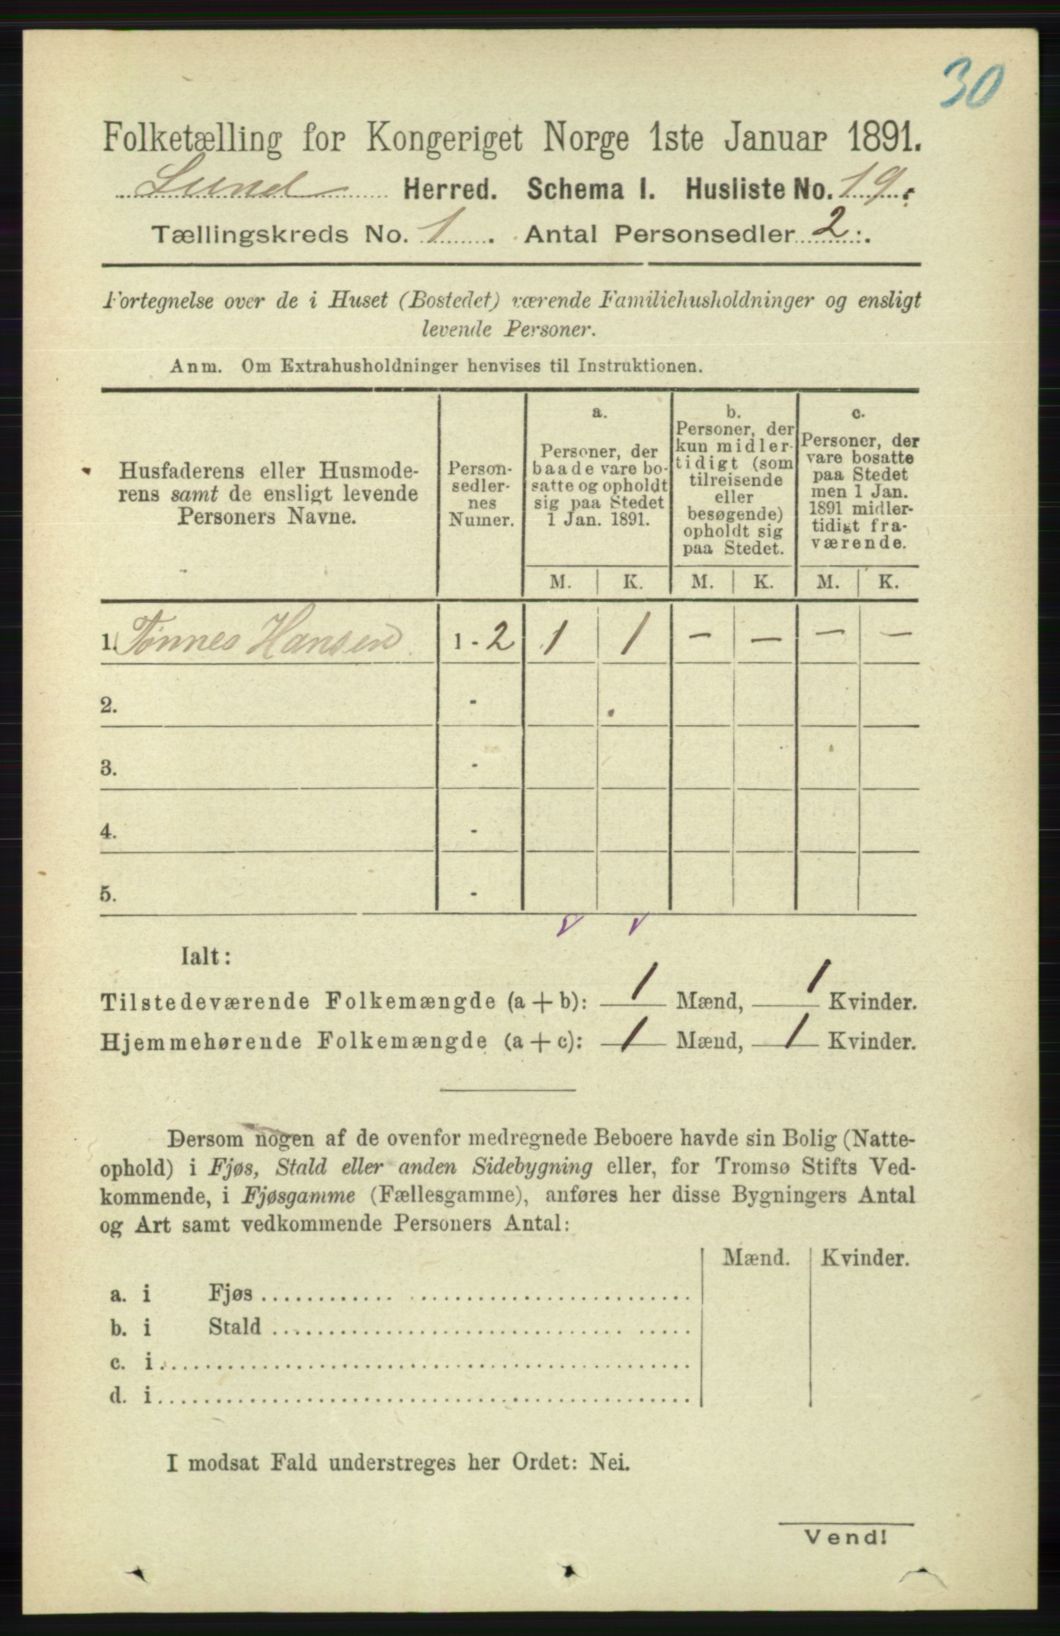 30
Folketælling for Kongeriget Norge 1ste Januar 1891.
Lund Herred. Schema I. Husliste No. 19.
Tællingskreds No. 1. Antal Personsedler 2.
Fortegnelse over de i Huset (Bostedet) værende Familiehusholdninger og ensligt
levende Personer.
Anm. Om Extrahusholdninger henvises til Instruktionen.
Husfaderens eller Husmode-
rens samt de ensligt levende
Personers Navne.
Person-
sedler-
nes
Numer.
a.
Personer, der
baade vare bo-
satte og opholdt
sig paa Stedet
1 Jan. 1891.
b.
Personer, der
kun midler-
tidigt (som
tilreisende
eller
besøgende)
opholdt sig
paa Stedet.
c.
Personer, der
vare bosatte
paa Stedet
men 1 Jan.
1891 midler-
tidigt fra-
værende.
M. K. M. K. M. K.
1. Tønnes Hansen 1 - 2 1 1 — — — —
2. -
3. -
4. -
5. -
Ialt:
Tilstedeværende Folkemængde (a + b): 1 Mænd, 1 Kvinder.
Hjemmehørende Folkemængde (a + c): 1 Mænd, 1 Kvinder.
Dersom nogen af de ovenfor medregnede Beboere havde sin Bolig (Natte-
ophold) i Fjøs, Stald eller anden Sidebygning eller, for Tromsø Stifts Ved-
kommende, i Fjøsgamme (Fællesgamme), anføres her disse Bygningers Antal
og Art samt vedkommende Personers Antal:
Mænd. Kvinder.
a. i Fjøs
b. i Stald
c. i
d. i
I modsat Fald understreges her Ordet: Nei.
Vend!